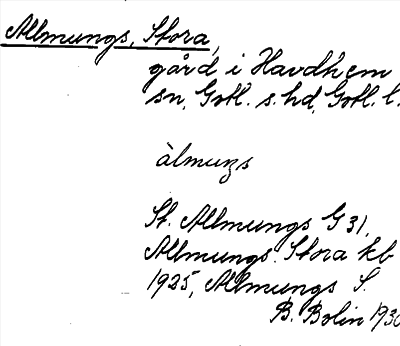 Allmungs, Stora,
gård i Havdhem
sn, Gotl. s. hd, Gotl. l.
àlmuns
St. Allmungs G 31,
Allmungs Stora kb
1925, Allmungs S.
B. Bolin 1930